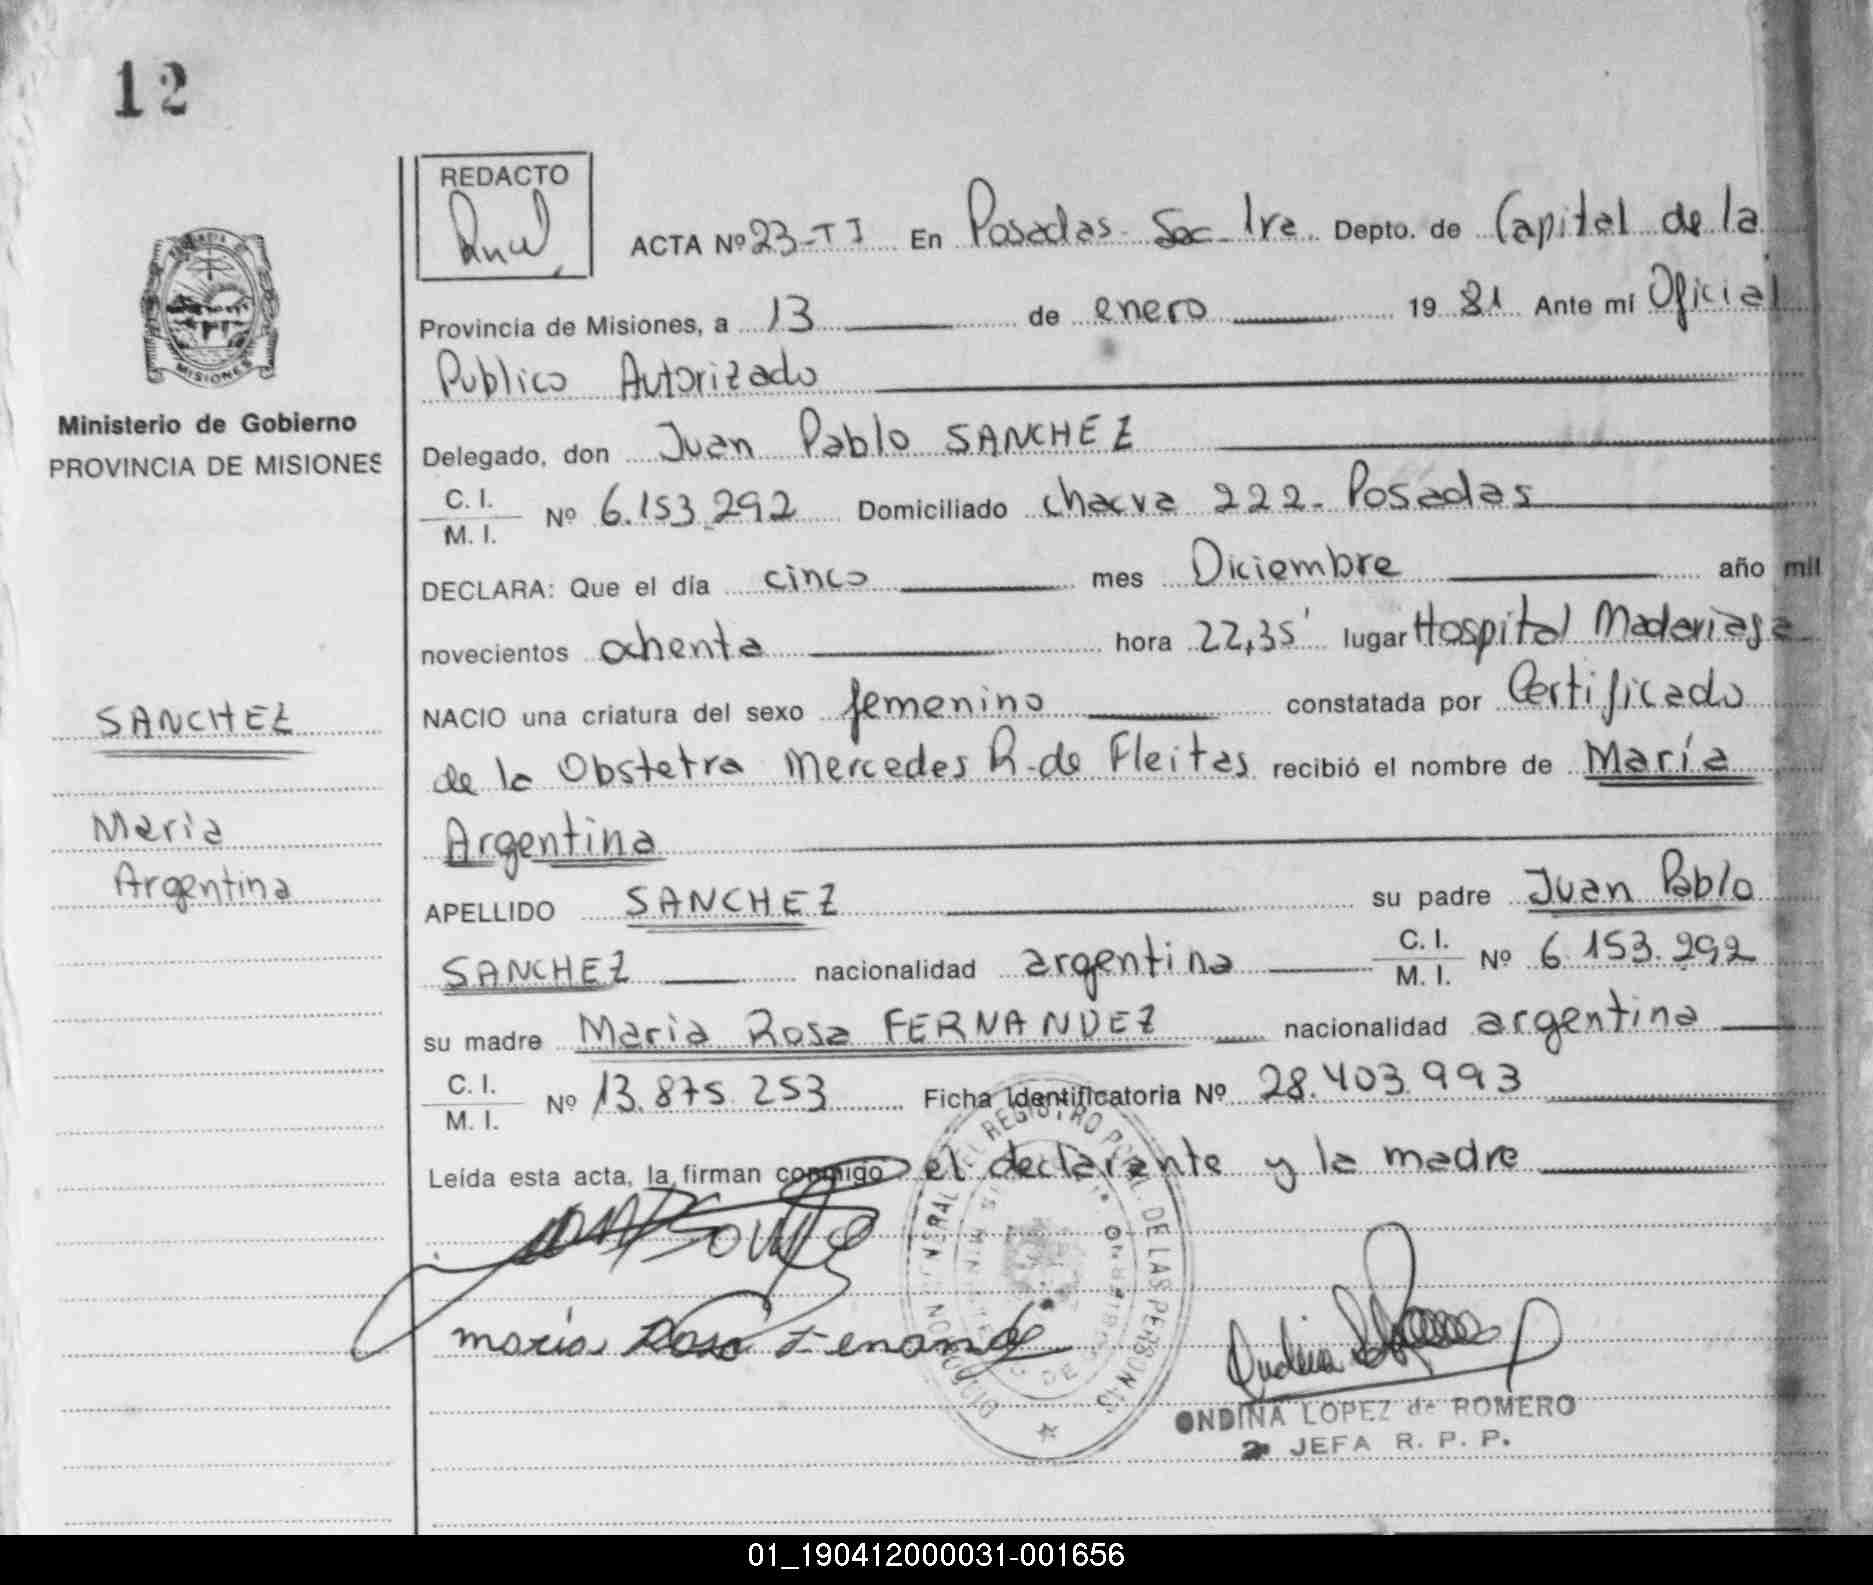 12
REDACTO
ACTA Nº 23-TI En Posadas - Sec. 1ra Depto. de Capital de la
Provincia de Misiones, a 13 de enero 19 81 Ante mí Oficial
Publico Autorizado
Ministerio de Gobierno
PROVINCIA DE MISIONES
MISIONES
Delegado, don Juan Pablo SANCHEZ
C. I.
M. I. Nº 6.153.292 Domiciliado chacra 222 - Posadas
DECLARA: Que el día cinco mes Diciembre año mil
novecientos ochenta hora 22,35' lugar Hospital Madariaga
NACIO una criatura del sexo femenino constatada por Certificado
de la Obstetra Mercedes R. de Fleitas recibió el nombre de María
Argentina
SANCHEZ
Maria
Argentina
APELLIDO SANCHEZ su padre Juan Pablo
SANCHEZ nacionalidad argentina C. I.
M. I. Nº 6.153.292
su madre Maria Rosa FERNANDEZ nacionalidad argentina
C. I.
M. I. Nº 13.875.253 Ficha Identificatoria Nº 28.403.993
Leída esta acta, la firman conmigo el declarante y la madre
maria Rosa Fernande
REGISTRO DE LAS PERSONAS
ONDINA LOPEZ de ROMERO
2ª JEFA R. P. P.
01_190412000031-001656